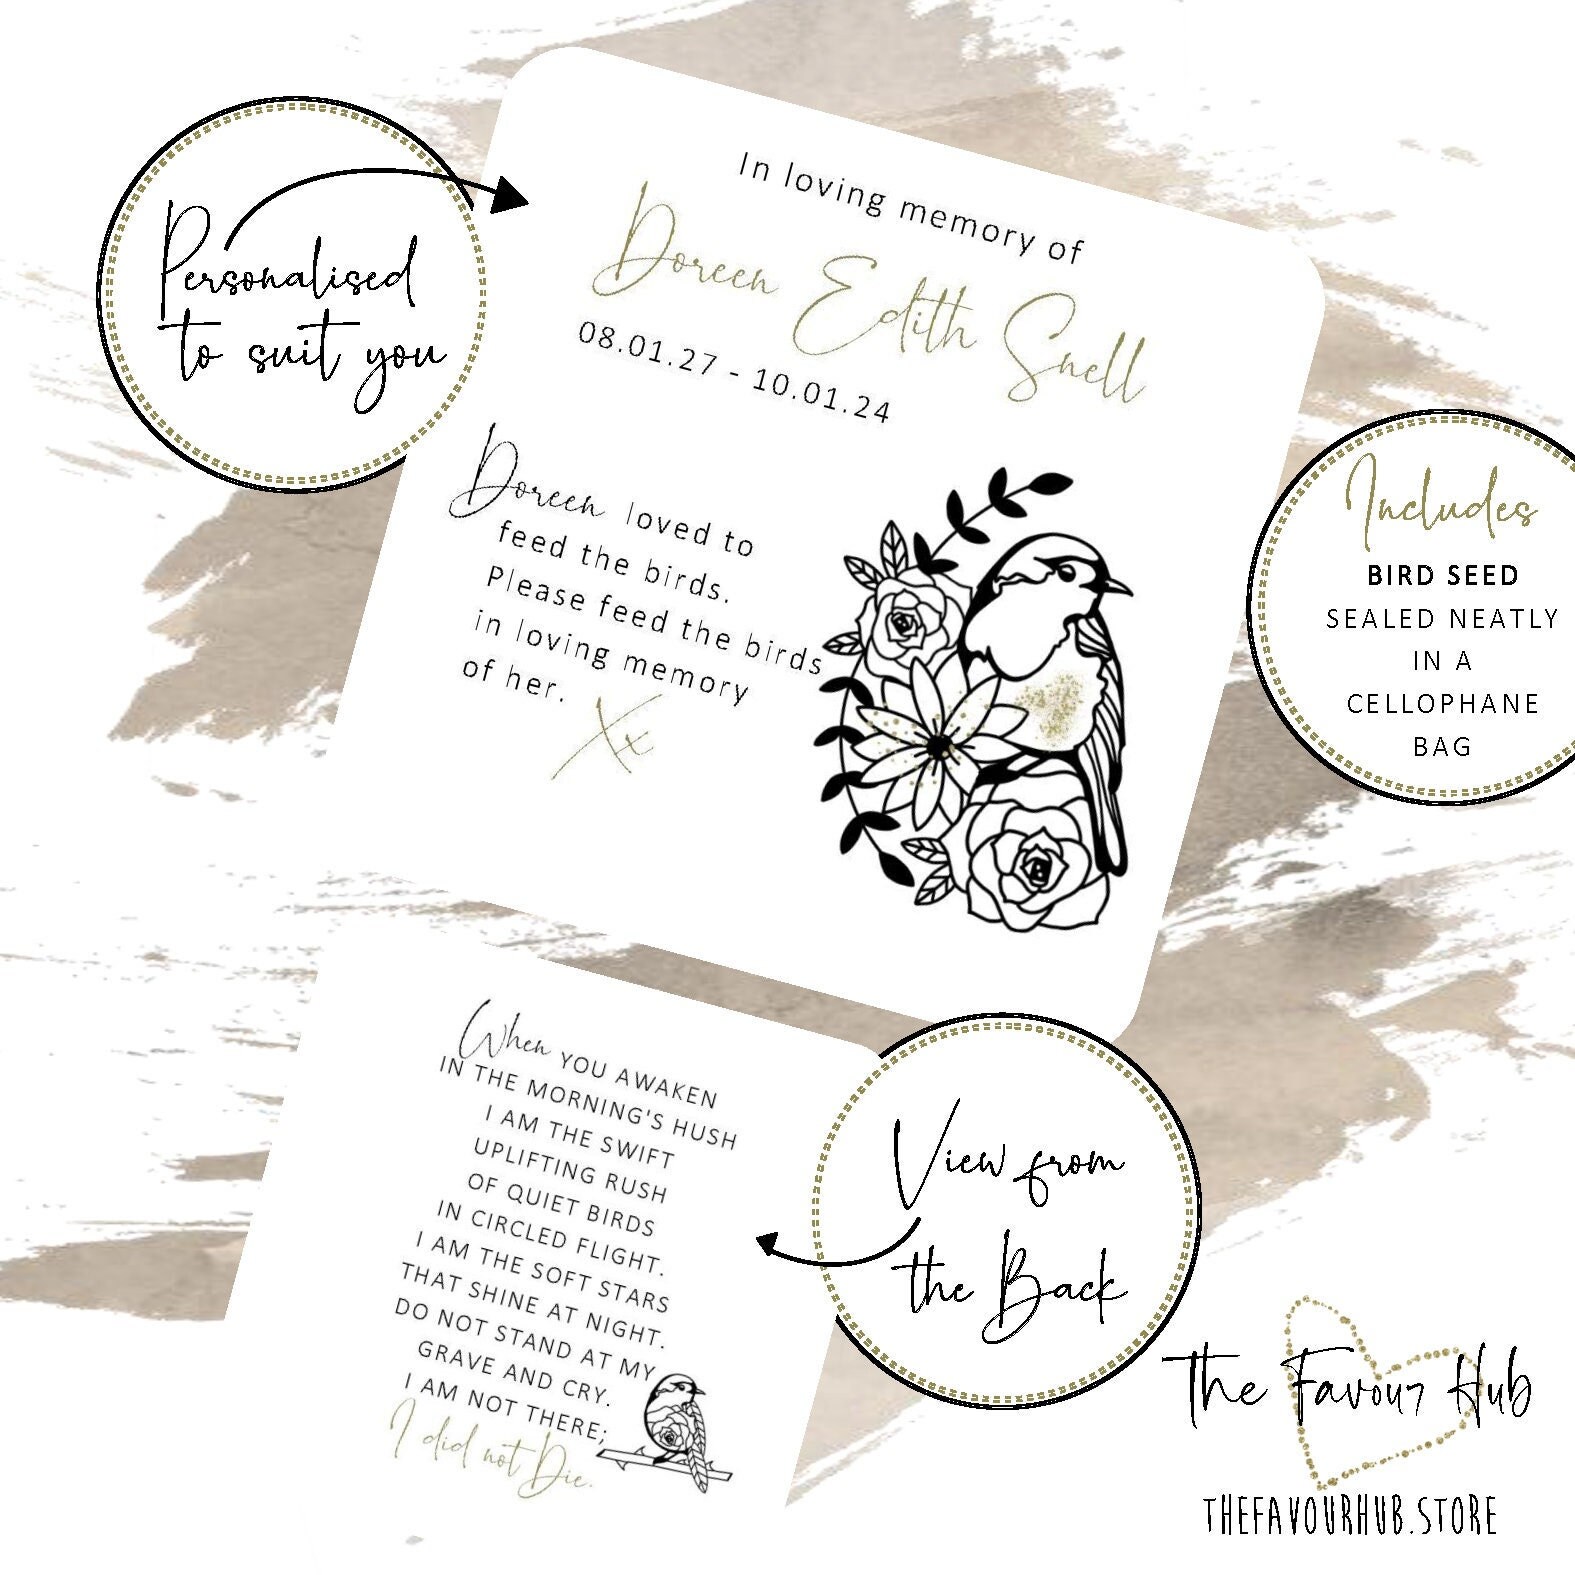 Personalised
to suit you
In loving memory of
Doreen Edith Snell
08.01.27 - 10.01.24
Doreen loved to
feed the birds.
Please feed the birds
in loving memory
of her.
Xx
Includes
BIRD SEED
SEALED NEATLY
IN A
CELLOPHANE
BAG
When YOU AWAKEN
IN THE MORNING'S HUSH
I AM THE SWIFT
UPLIFTING RUSH
OF QUIET BIRDS
IN CIRCLED FLIGHT.
I AM THE SOFT STARS
THAT SHINE AT NIGHT.
DO NOT STAND AT MY
GRAVE AND CRY.
I AM NOT THERE;
I did not Die.
View from
the Back
The Favour Hub
THEFAVOURHUB.STORE